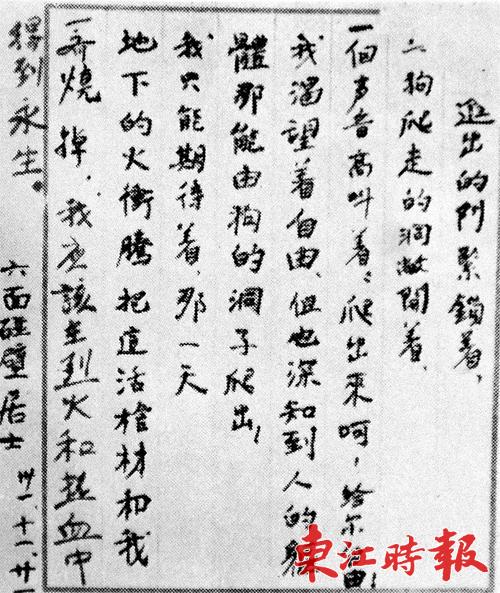 進出的門緊鎖着,
狗爬走的洞敞開着,
一個声音高叫着:爬出來呵,給尔自由!
我渴望着自由,但也深知到人的軀
體那能由狗的洞子爬出!
我只能期待着,那一天
地下的火衝騰把這活棺材和我
一齊燒掉,我應該在烈火和热血中
得到永生。
六面碰壁居士 卅一.十一.廿一
東江時報